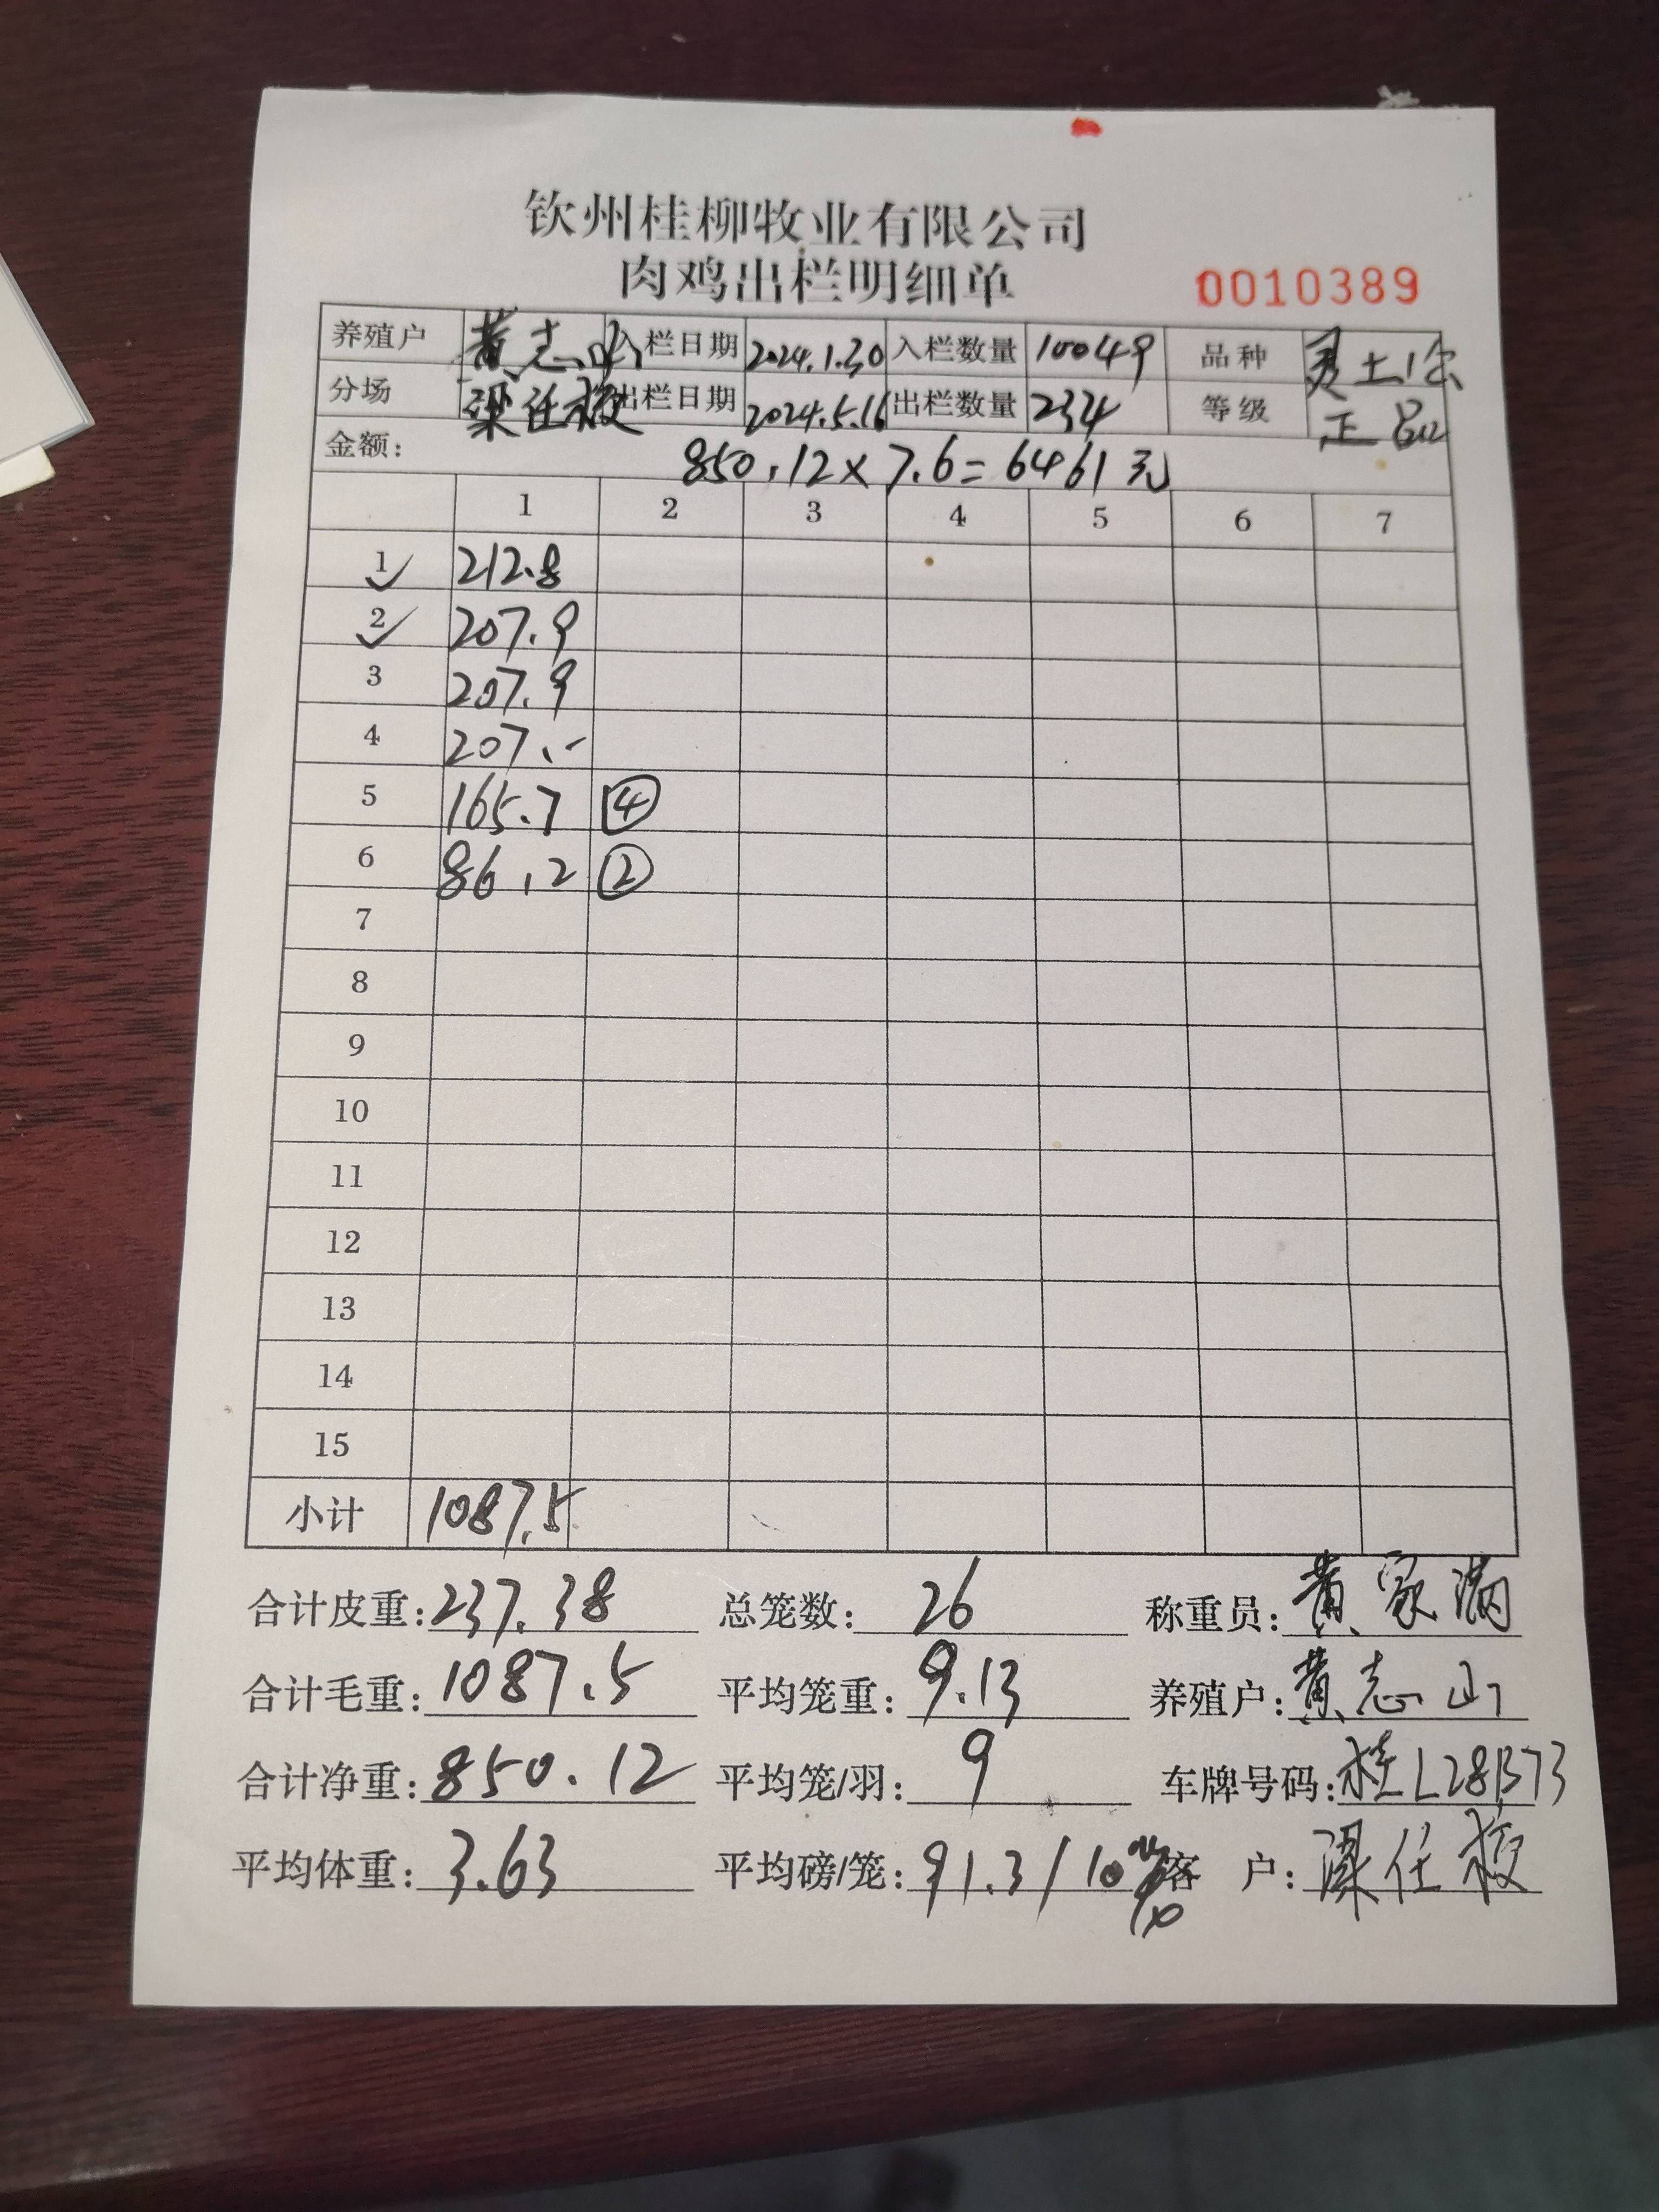 钦州桂柳牧业有限公司
肉鸡出栏明细单
0010389
养殖户 黄志山 入栏日期 2024.1.30 入栏数量 10049 品种 灵土1公
分场 梁任校 出栏日期 2024.5.16 出栏数量 234 等级 正品
金额: 850.12×7.6=6461元
1 2 3 4 5 6 7
1 ✓ 212.8
2 ✓ 207.9
3 207.9
4 207.-
5 165.7 ④
6 86.2 ②
7
8
9
10
11
12
13
14
15
小计 1087.5
合计皮重: 237.38 总笼数: 26 称重员: 黄家满
合计毛重: 1087.5 平均笼重: 9.13 养殖户: 黄志山
合计净重: 850.12 平均笼/羽: 9 车牌号码: 桂L28B73
平均体重: 3.63 平均磅/笼: 91.3/10 客 户: 梁任校